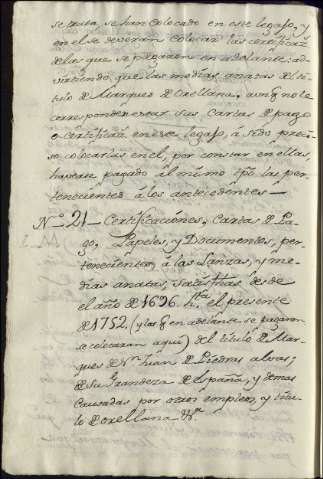 se trata, se han colocado en este legajo, y
en el se deverán colocar las certificaz.
de las que se pagaren en adelante: ad-
virtiendo, que las medias anatas del ti-
tulo de Marques de Orellana, aunq no le
corresponden estar sus Cartas de pago
o Certificaz. en este legajo, á sido preci-
so colocarlas en el, por constar en ellas,
haverse pagado al mismo tpo las per-
tenecientes á los antecedentes
N.º 21 Certificaciónes, Cartas de Pa-
go, Papeles, y Documentos, per-
tenecientes, á las lanzas, y me-
dias anatas, satisfhas desde
el año de 1696. hta. el presente
de 1752. (y las q en adelante se pagaren
se colocaran aqui) del titulo de Mar-
ques de Sn. Juan de Piedras alvas;
de su Grandeza de España, y demas
causadas por otros empleos, y titu-
lo de Orellana